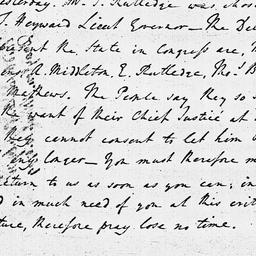 yesterday. Mr. J. Rutledge was chos
T. Heyward Lieut Governor — The De
the State in Congress are,
A. Middleton, E. Rutledge, Thos. B
Mathews. The People say they so
the want of their Chief Justice at
they cannot consent to let him
any longer — You must therefore
return to us as soon as you can; in
d in much need of you at this crit
ture, therefore pray lose no time.